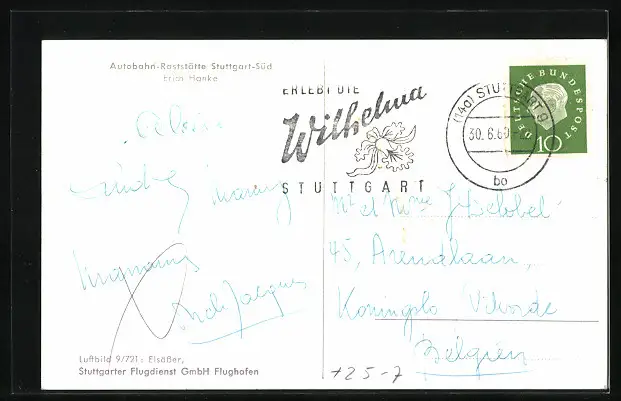 Autobahn-Raststätte Stuttgart-Süd
Erich Hanke
ERLEBT DIE
Wilhelma
STUTTGART
(14a) STUTTGART 9
30.6.60
bo
DEUTSCHE BUNDESPOST
10
André
Jacques
Mr et Mme J Delobel
45, Arendlaan,
Koningslo Vilvorde
Belgien
Luftbild 9/721: Elsäßer,
Stuttgarter Flugdienst GmbH Flughofen
+25-7